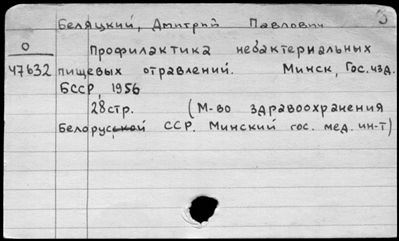 Беляцкий, Дмитрий Павлович
О
47632
Профилактика небактериальных
пищевых отравлений. Минск, Гос. изд.
БССР, 1956
28стр. (М-во здравоохранения
Белорусской ССР. Минский гос. мед. ин-т)